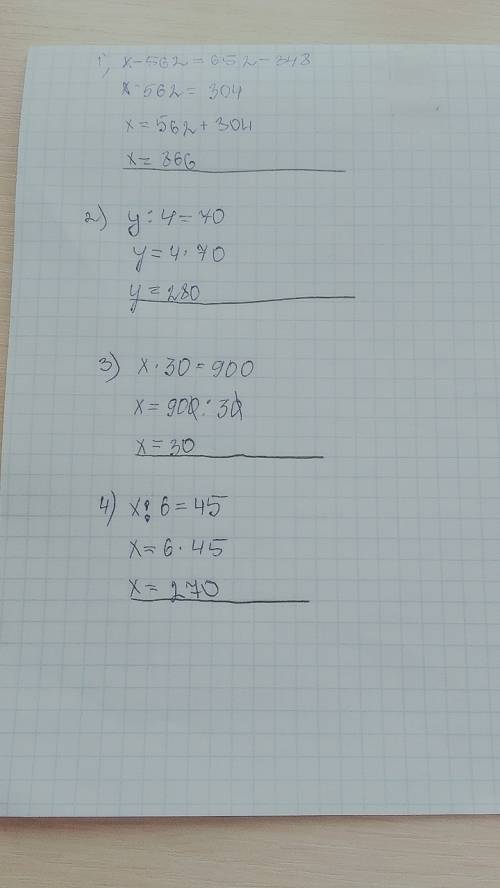 1) x-562=652-348
x-562=304
x=562+304
x=866
2) y:4=70
y=4·70
y=280
3) x·30=900
x=900:30
x=30
4) x:6=45
x=6·45
x=270